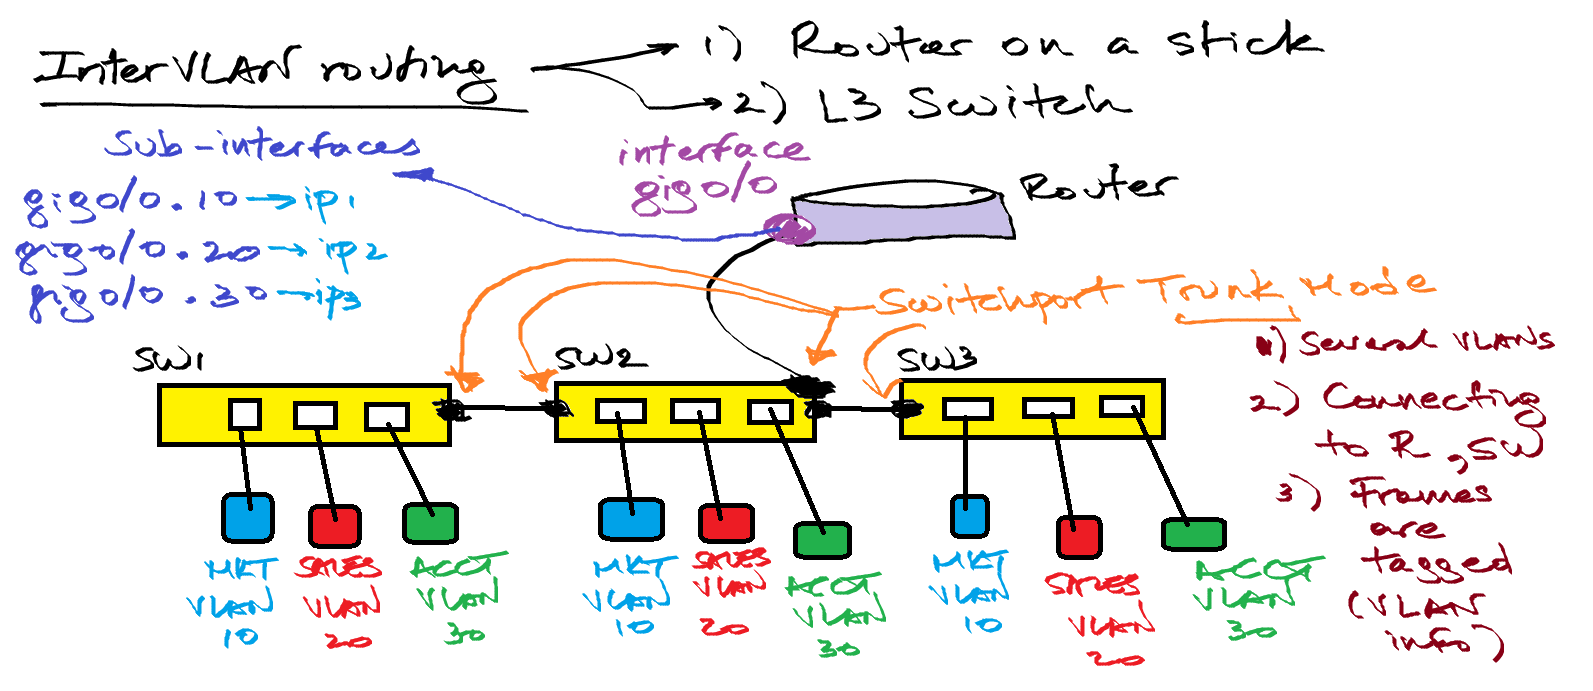 InterVLAN routing
1) Router on a stick
2) L3 Switch
Sub-interfaces
gig0/0.10→ip1
gig0/0.20→ip2
gig0/0.30→ip3
interface
gig0/0
Router
Switchport Trunk Mode
1) Several VLANS
2) Connecting
to R, SW
3) Frames
are
tagged
(VLAN
info)
SW1
SW2
SW3
MKT
VLAN
10
SALES
VLAN
20
ACCT
VLAN
30
MKT
VLAN
10
SALES
VLAN
20
ACCT
VLAN
30
MKT
VLAN
10
SALES
VLAN
20
ACCT
VLAN
30